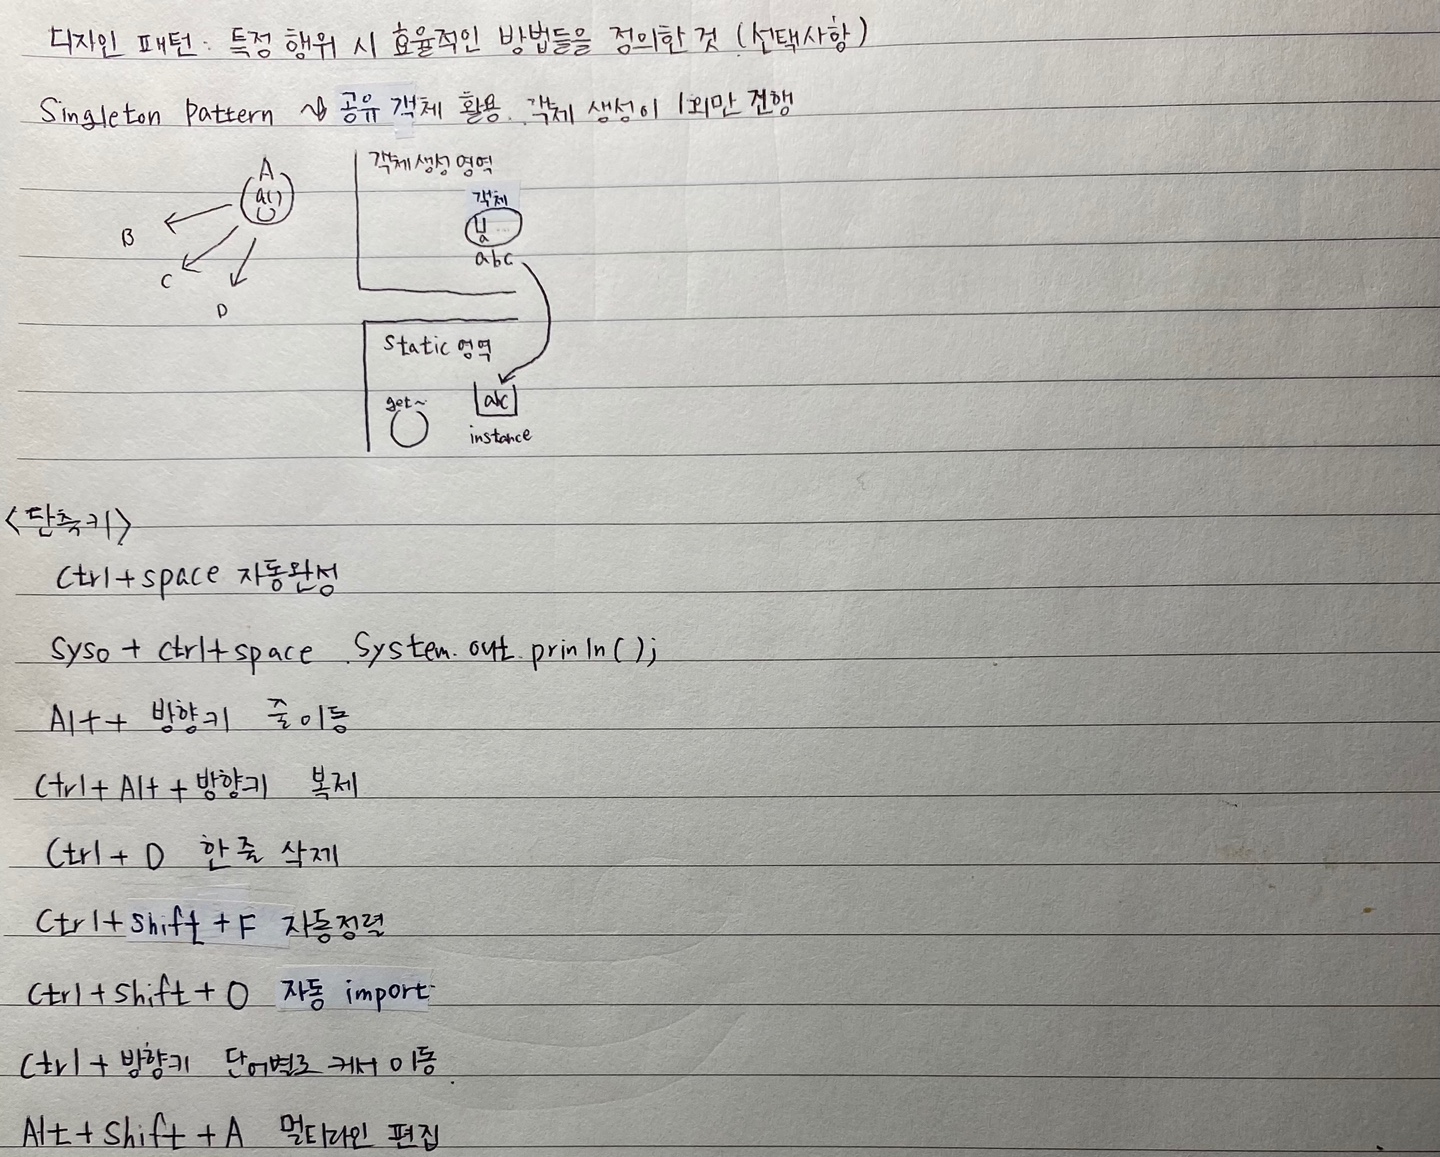 디자인 패턴: 특정 행위 시 효율적인 방법들을 정의한 것 (선택사항)
Singleton Pattern ↝ 공유 객체 활용. 객체 생성이 1회만 진행
A
a()
B
C
D
객체생성 영역
객체
a
abc
Static 영역
get~
abc
instance
<단축키>
Ctrl+space 자동완성
Syso + Ctrl+space System.out.prinln();
Alt+ 방향키 줄이동
Ctrl+Alt+방향키 복제
Ctrl+D 한줄 삭제
Ctrl+Shift+F 자동정렬
Ctrl+Shift+O 자동 import
Ctrl+방향키 단어별로 커서 이동
Alt+Shift+A 멀티라인 편집